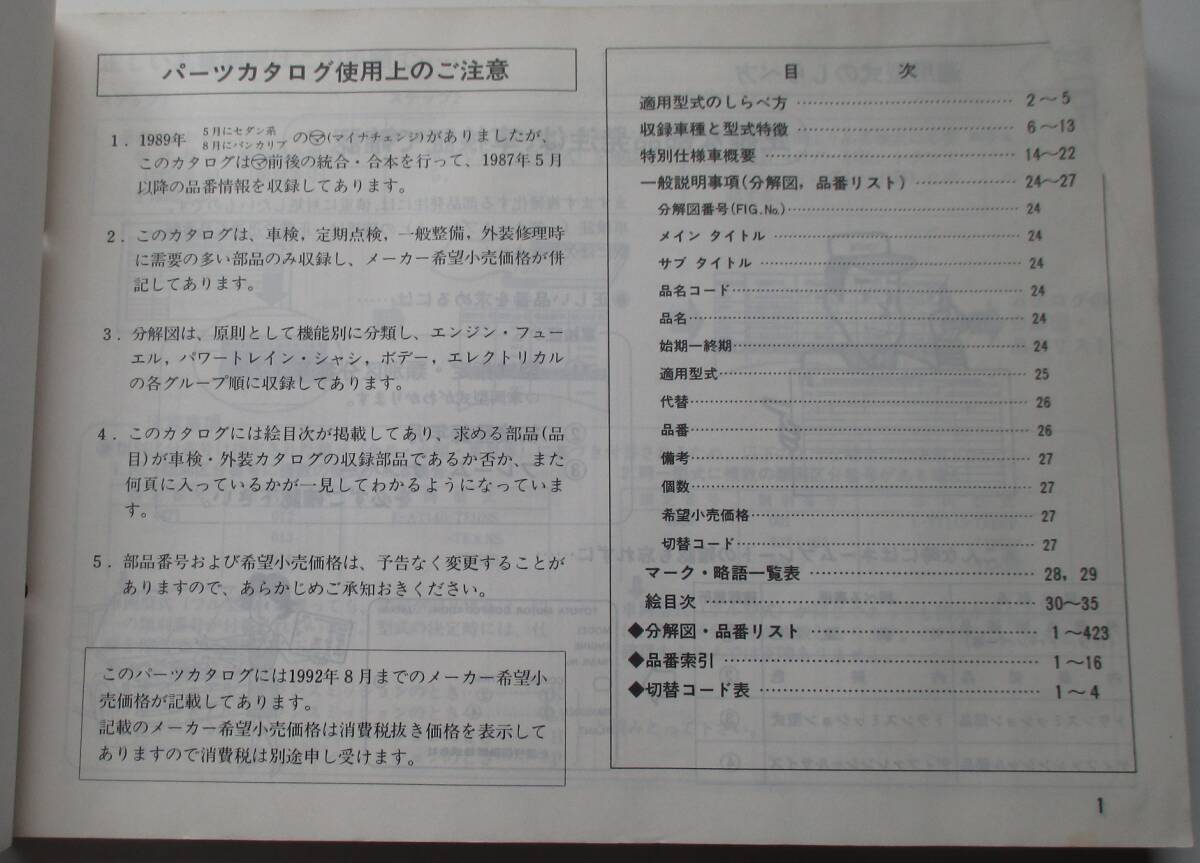 パーツカタログ使用上のご注意
1. 1989年 5月にセダン系 8月にバンカリブ の㋮(マイナチェンジ)がありましたが、
このカタログは㋮前後の統合・合本を行って、1987年5月
以降の品番情報を収録してあります。
2. このカタログは、車検,定期点検,一般整備,外装修理時
に需要の多い部品のみ収録し、メーカー希望小売価格が併
記してあります。
3. 分解図は、原則として機能別に分類し、エンジン・フュー
エル,パワートレイン・シャシ,ボデー,エレクトリカル
の各グループ順に収録してあります。
4. このカタログには絵目次が掲載してあり、求める部品(品
目)が車検・外装カタログの収録部品であるか否か、また
何頁に入っているかが一見してわかるようになっていま
す。
5. 部品番号および希望小売価格は、予告なく変更することが
ありますので、あらかじめご承知おきください。
このパーツカタログには1992年8月までのメーカー希望小
売価格が記載してあります。
記載のメーカー希望小売価格は消費税抜き価格を表示して
ありますので消費税は別途申し受けます。
目 次
適用型式のしらべ方 ………… 2〜5
収録車種と型式特徴 ………… 6〜13
特別仕様車概要 ………… 14〜22
一般説明事項(分解図,品番リスト) ………… 24〜27
分解図番号(FIG.No.) ………… 24
メイン タイトル ………… 24
サブ タイトル ………… 24
品名コード ………… 24
品名 ………… 24
始期ー終期 ………… 24
適用型式 ………… 25
代替 ………… 26
品番 ………… 26
備考 ………… 27
個数 ………… 27
希望小売価格 ………… 27
切替コード ………… 27
マーク・略語一覧表 ………… 28,29
絵目次 ………… 30〜35
◆分解図・品番リスト ………… 1〜423
◆品番索引 ………… 1〜16
◆切替コード表 ………… 1〜4
1